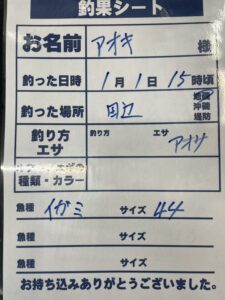 釣果シート
お名前 アオキ 様
釣った日時 1月1日15時頃
釣った場所 田辺 地磯 沖磯 堤防
釣り方 エサ 釣り方 エサ アオサ
種類・カラー
魚種 イガミ サイズ 44
魚種 サイズ
魚種 サイズ
お持ち込みありがとうございました。